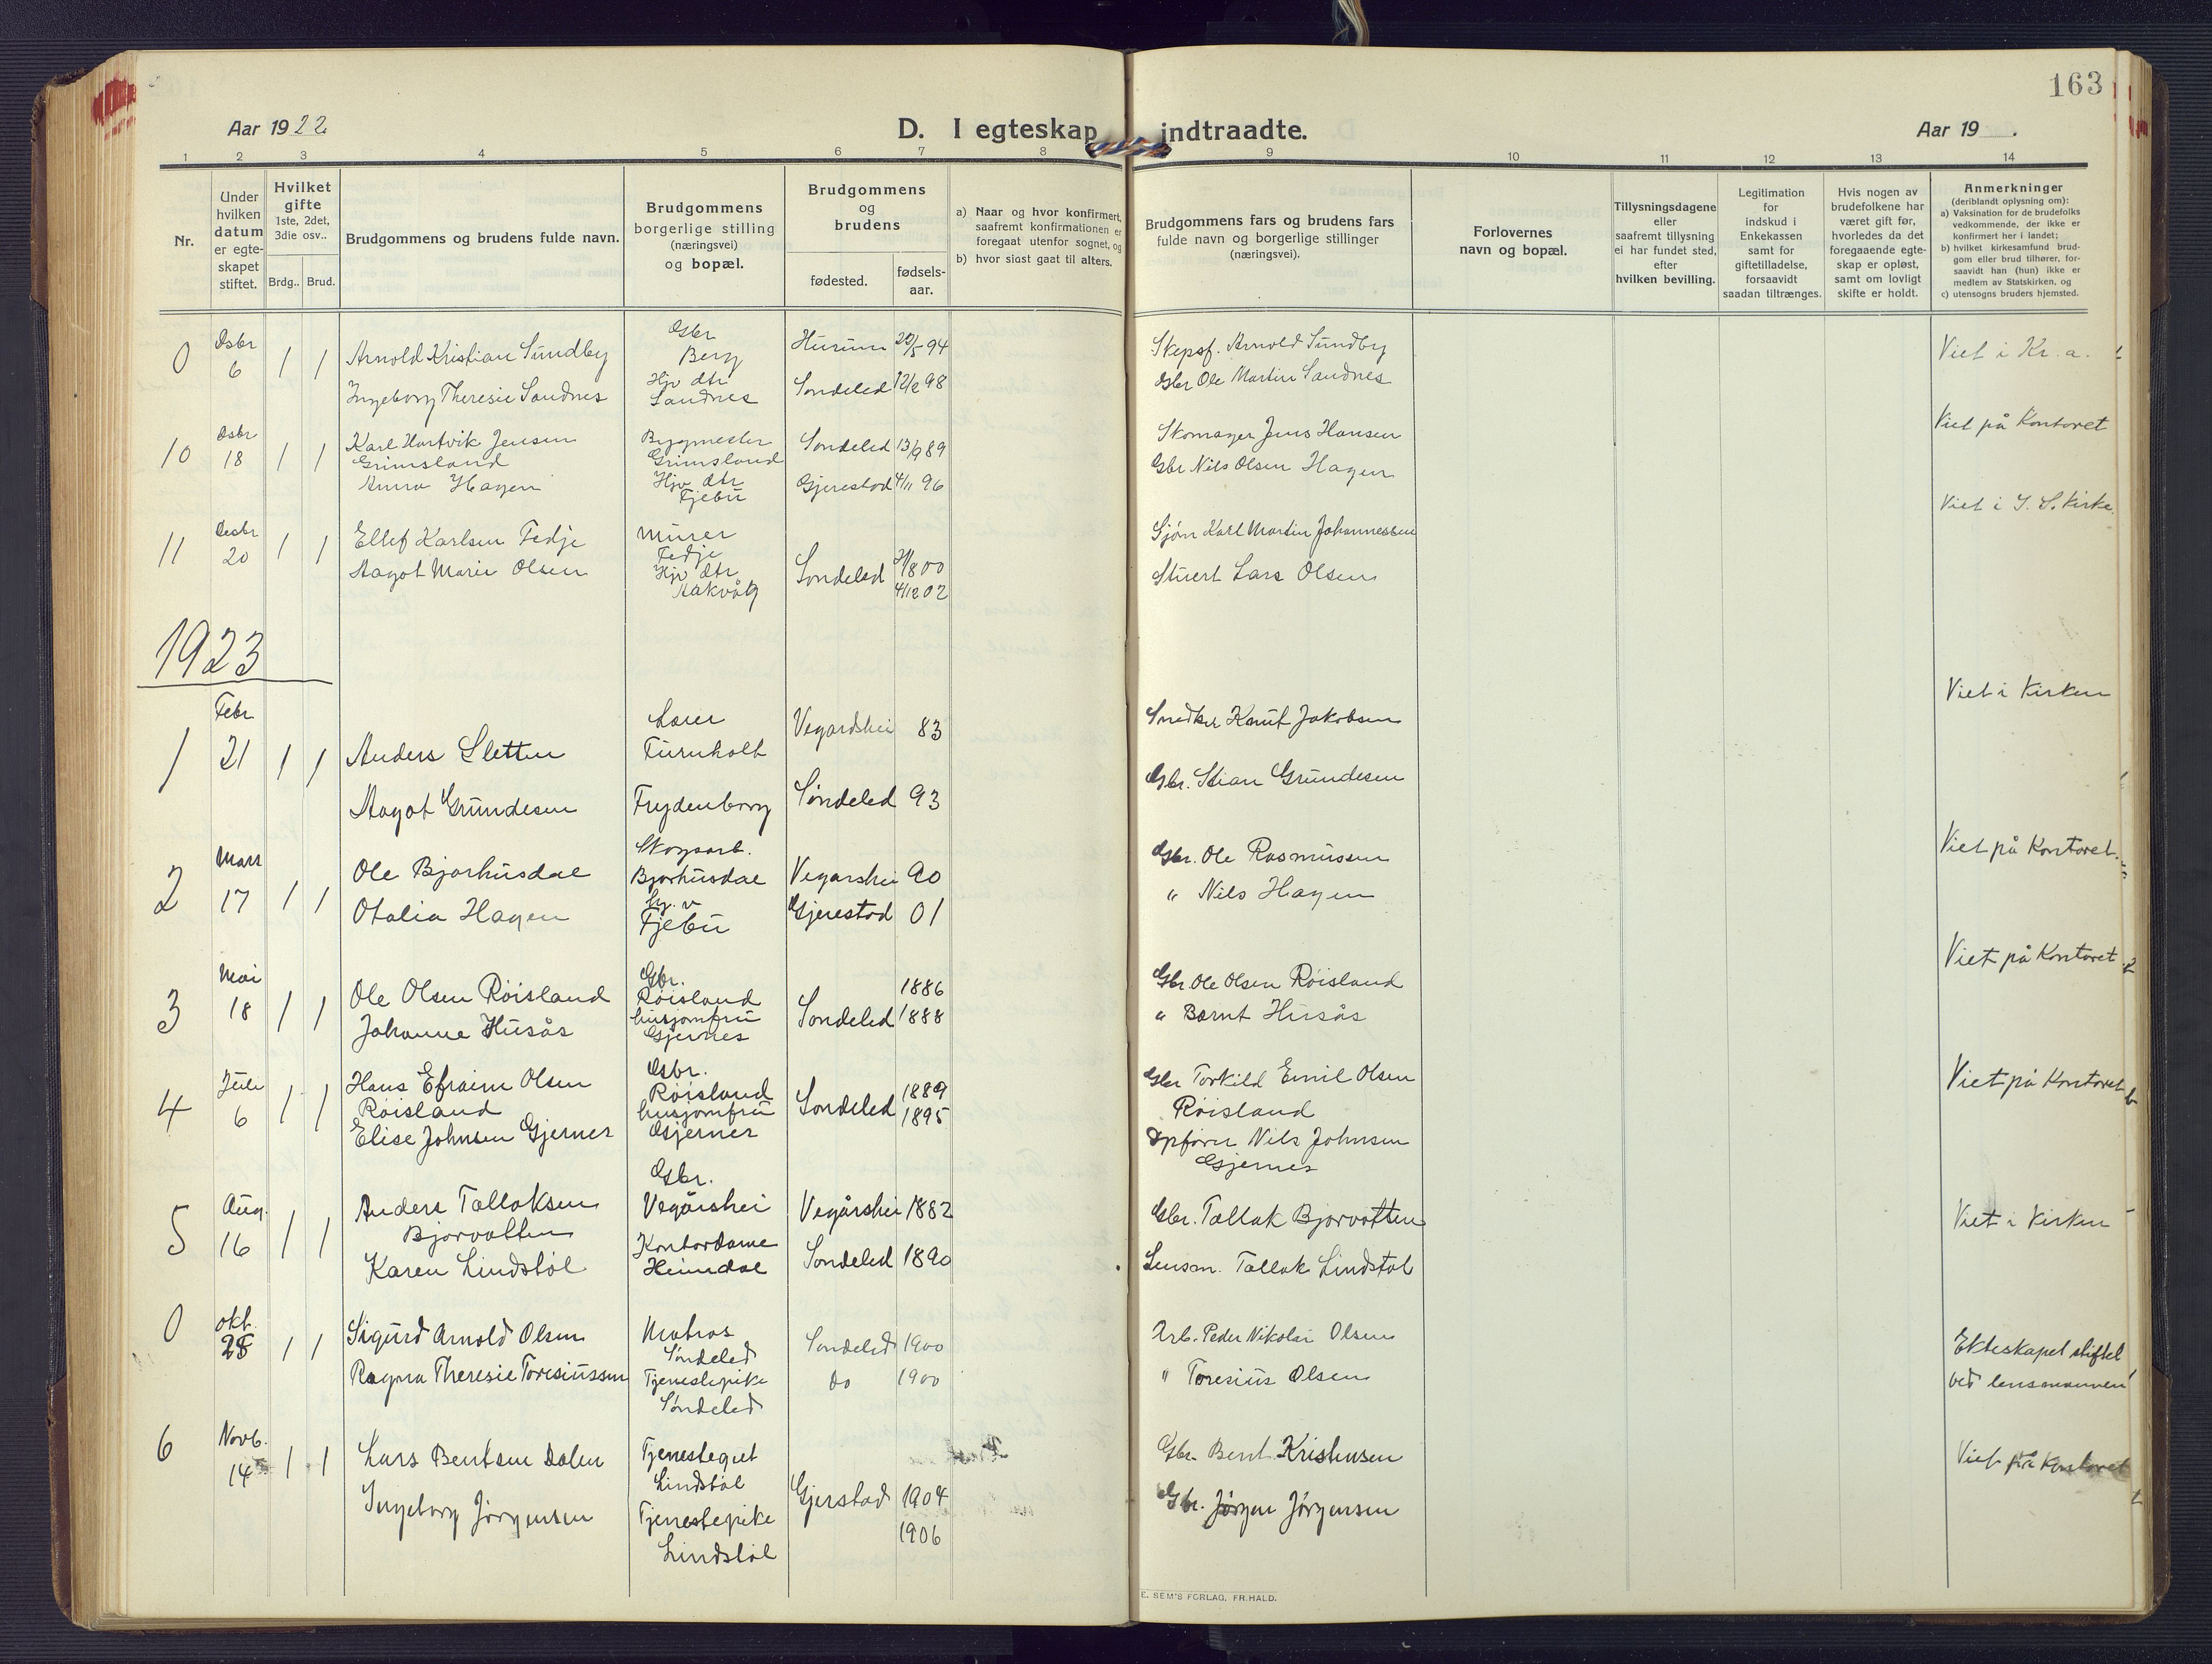 163
Aar 1922
D. I egteskap indtraadte.
Aar 19 .
1 2 3 4 5 6 7 8 9 10 11 12 13 14
Nr.
Under hvilken datum er egteskapet stiftet.
Hvilket gifte
1ste, 2det, 3die osv..
Brdg.. Brud.
Brudgommens og brudens fulde navn.
Brudgommens borgerlige stilling (næringsvei) og bopæl.
Brudgommens og brudens
fødested.
fødsels-aar.
a) Naar og hvor konfirmert, saafremt konfirmationen er foregaat utenfor sognet, og
b) hvor sidst gaat til alters.
Brudgommens fars og brudens fars fulde navn og borgerlige stillinger (næringsvei).
Forlovernes navn og bopæl.
Tillysningsdagene eller saafremt tillysning ei har fundet sted, efter hvilken bevilling.
Legitimation for indskud i Enkekassen samt for giftetilladelse, forsaavidt saadan tiltrænges.
Hvis nogen av brudefolkene har været gift før, hvorledes da det foregaaende egteskap er opløst, samt om lovligt skifte er holdt.
Anmerkninger
(deriblandt oplysning om):
a) Vaksination for de brudefolks vedkommende, der ikke er konfirmert her i landet;
b) hvilket kirkesamfund brudgom eller brud tilhører, forsaavidt han (hun) ikke er medlem av Statskirken, og
c) utensogns bruders hjemsted.
0 Dsbr 6 1 1 Arnold Kristian Sundby Gbr Berg Hurum 20/5 94 Skepsf. Arnold Sundby Viet i Kr.a.
Ingeborg Theresie Sandnes Hjv dtr Sandnes Søndeled 12/2 98 Gbr Ole Martin Sandnes
10 Dsbr 18 1 1 Karl Hartvik Jensen Grimsland Byggmester Grimsland Søndeled 13/9 89 Skomager Jens Hansen Viet på Kontoret
Anna Hagen Hjv dtr Fjebu Gjerestad 4/11 96 Gbr Nils Olsen Hagen
11 Desbr 20 1 1 Ellef Karlsen Fedje Murer Fedje Søndeled 21/8 00 Sjøm Karl Martin Johannessen Viet i S. S. Kirke.
Aagot Marie Olsen Hjv dtr Aakvåg 4/12 02 Stuert Lars Olsen
1923
1 Febr 21 1 1 Anders Sletten Lærer Furuholt Vegardshei 83 Snedker Knut Jakobsen Viet i Kirken
Aagot Grundesen Frydenborg Søndeled 93 Gbr. Stian Grundesen
2 Mars 17 1 1 Ole Bjorhusdal Skogsarb. Bjorhusdal Vegarshei 90 Gbr. Ole Rasmussen Viet på Kontoret.
Otalia Hagen hj. v Fjebu Gjerestad 01 " Nils Hagen
3 Mai 18 1 1 Ole Olsen Røisland Gbr. Røisland 1886 Gbr. Ole Olsen Røisland Viet på Kontoret
Johanne Husås husjomfru Gjernes Søndeled 1888 " Bernt Husås
4 Juli 6 1 1 Hans Efraim Olsen Røisland Gbr. Røisland Søndeled 1889 Gbr Torkild Emil Olsen Røisland Viet på Kontoret
Elise Johnsen Gjernes husjomfru Gjernes 1895 Opfører Nils Johnsen Gjernes
5 Aug. 16 1 1 Anders Tallaksen Bjorvatten Gbr. Vegårshei Vegårshei 1882 Gbr. Tallak Bjorvatten Viet i Kirken
Karen Lindstøl Kontordame Heimdal Søndeled 1890 Lensm. Tallak Lindstøl
0 okt. 28 1 1 Sigurd Arnold Olsen Matros Søndeled Søndeled 1900 Arb. Peder Nikolai Olsen Ekteskapet stiftet
Ragna Theresie Toresiussen Tjenestepike Søndeled do 1900 " Toresius Olsen ved lensmannen
6 Novb. 14 1 1 Lars Bentsen Dalen Tjenestegut Lindstøl Gjerstad 1904 Gbr. Bent Kristensen Viet på Kontoret
Ingeborg Jørgensen Tjenestepike Lindstøl 1906 Gbr. Jørgen Jørgensen
E. SEM'S FORLAG, FR.HALD.